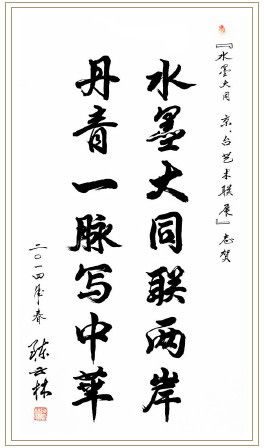 『水墨大同 京·台艺术联展』志贺
水墨大同联两岸
丹青一脉写中华
二〇一四年春 陈云林